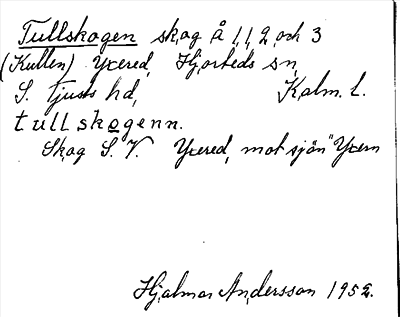 Tullskogen skog å 1,1, 2, och 3
(Kullen) Yxered, Hjorteds sn,
S. Tjusts hd, Kalm. l.
tullskogenn.
Skog S. V. Yxered, mot sjön "Yxern
Hjalmar Andersson 1952.